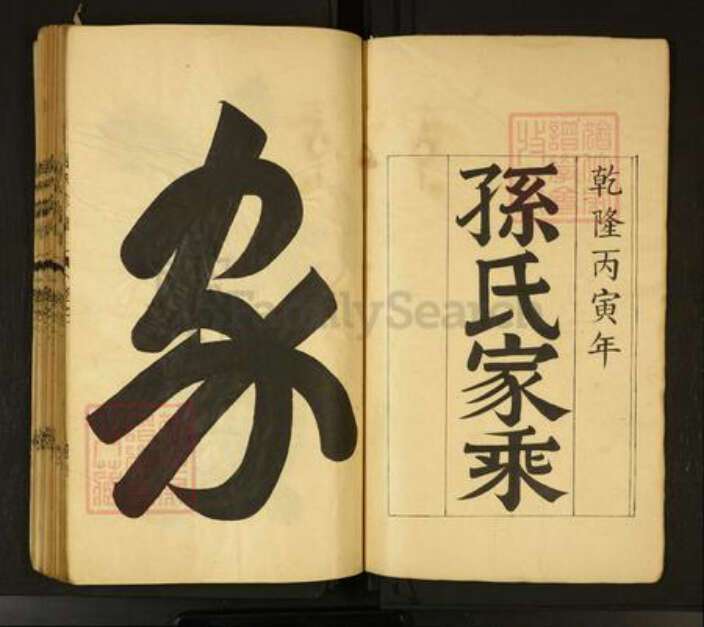 乾隆丙寅年
孫氏家乘
家
FamilySearch